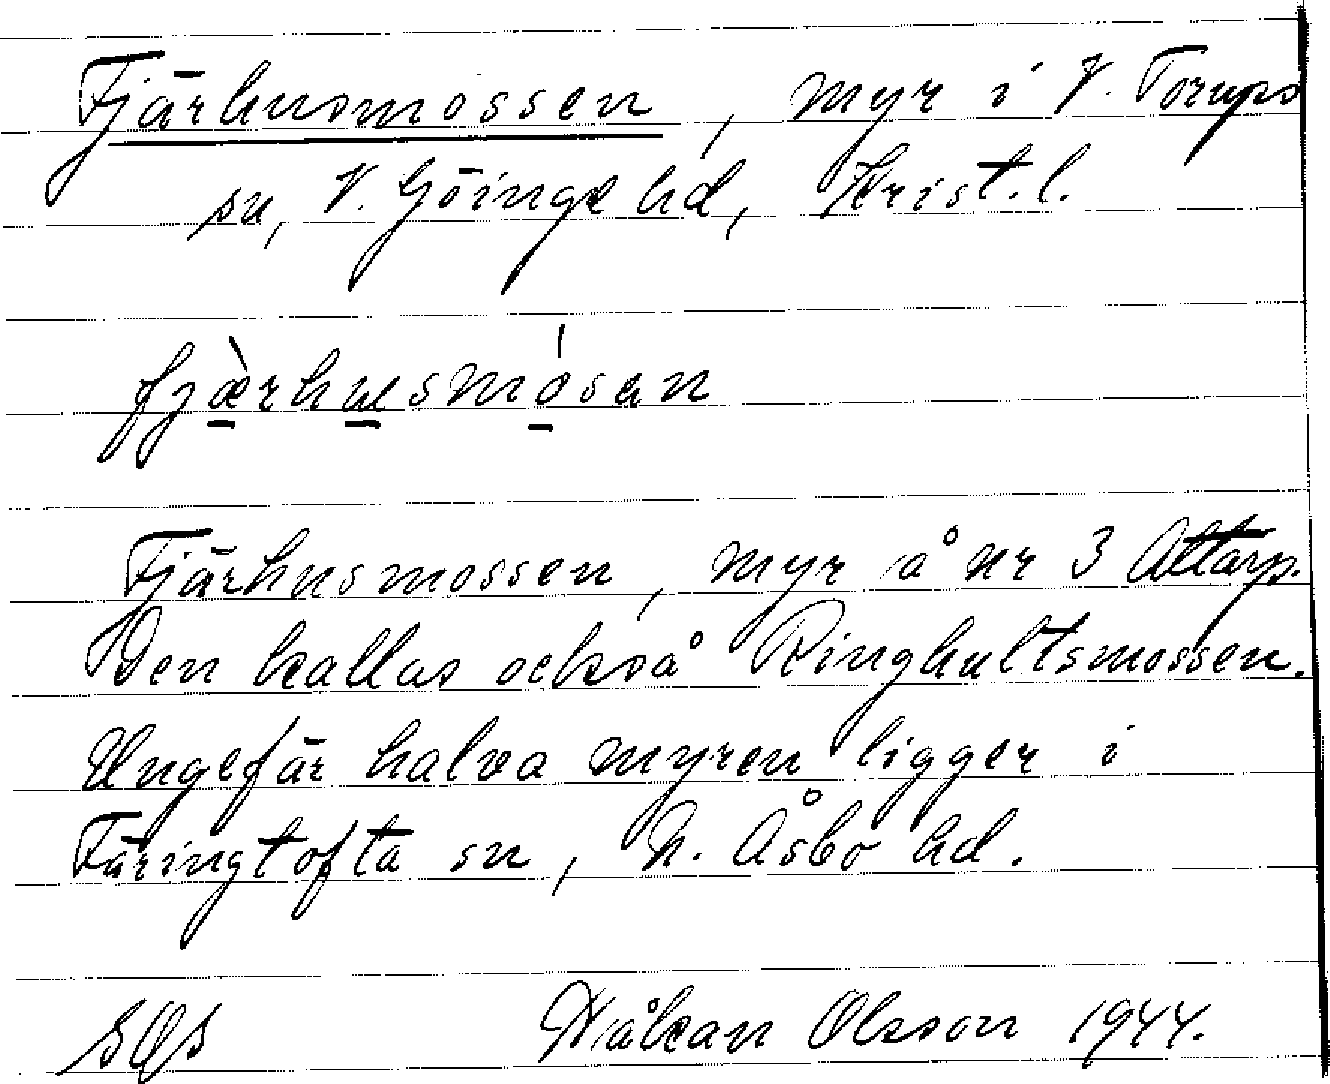 Fjärhusmossen, myr i V. Torups
sn, V. Göinge hd, Krist. l.
fjæ̀rhusmósen
Fjärhusmossen, myr å nr 3 Attarp.
Den kallas också Ringhultsmossen.
Ungefär halva myren ligger i
Färingtofta sn, N. Åsbo hd.
SOS Håkan Olsson 1944.